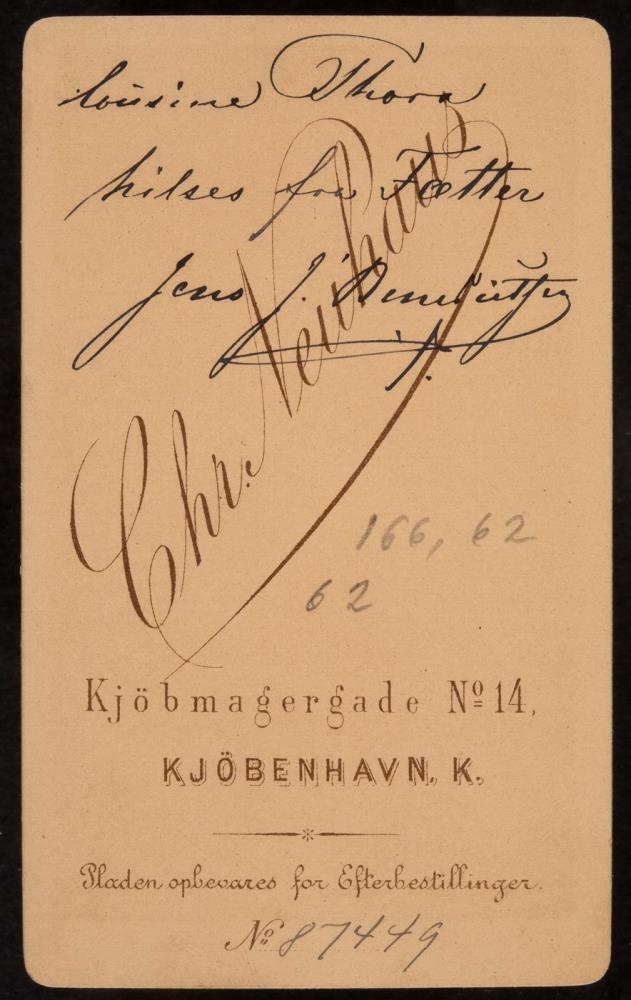 Cousine Thora
hilses fra Fætter
Jens J.
Chr. Neuhaus
166, 62
62
Kjöbmagergade Nº 14,
KJÖBENHAVN. K.
Pladen opbevares for Efterbestillinger.
Nº 87449